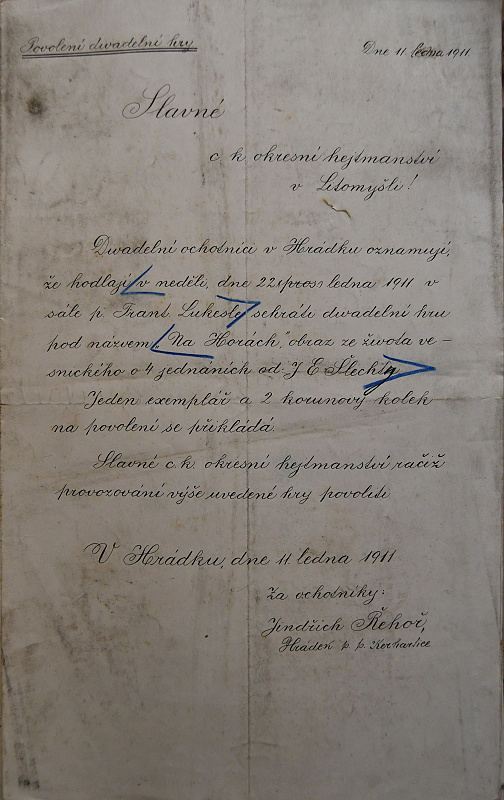 Povolení divadelní hry
Dne 11 ledna 1911
Slavné
c. k. okresní hejtmanství
v Litomyšli!
Divadelní ochotníci v Hrádku oznamují,
že hodlají v neděli, dne 22 (pros) ledna 1911 v
sále p. Frant Lukesle sehráti divadelní hru
pod názvem „Na Horách", obraz ze života ve-
snického o 4 jednáních od: J E Šlechty
Jeden exemplář a 2 korunový kolek
na povolení se překládá.
Slavné c. k. okresní hejtmanství račiž
provozování výše uvedené hry povoliti
V Hrádku, dne 11 ledna 1911
Za ochotníky:
Jindřich Řehoř,
Hrádek p. p. Kerhartice